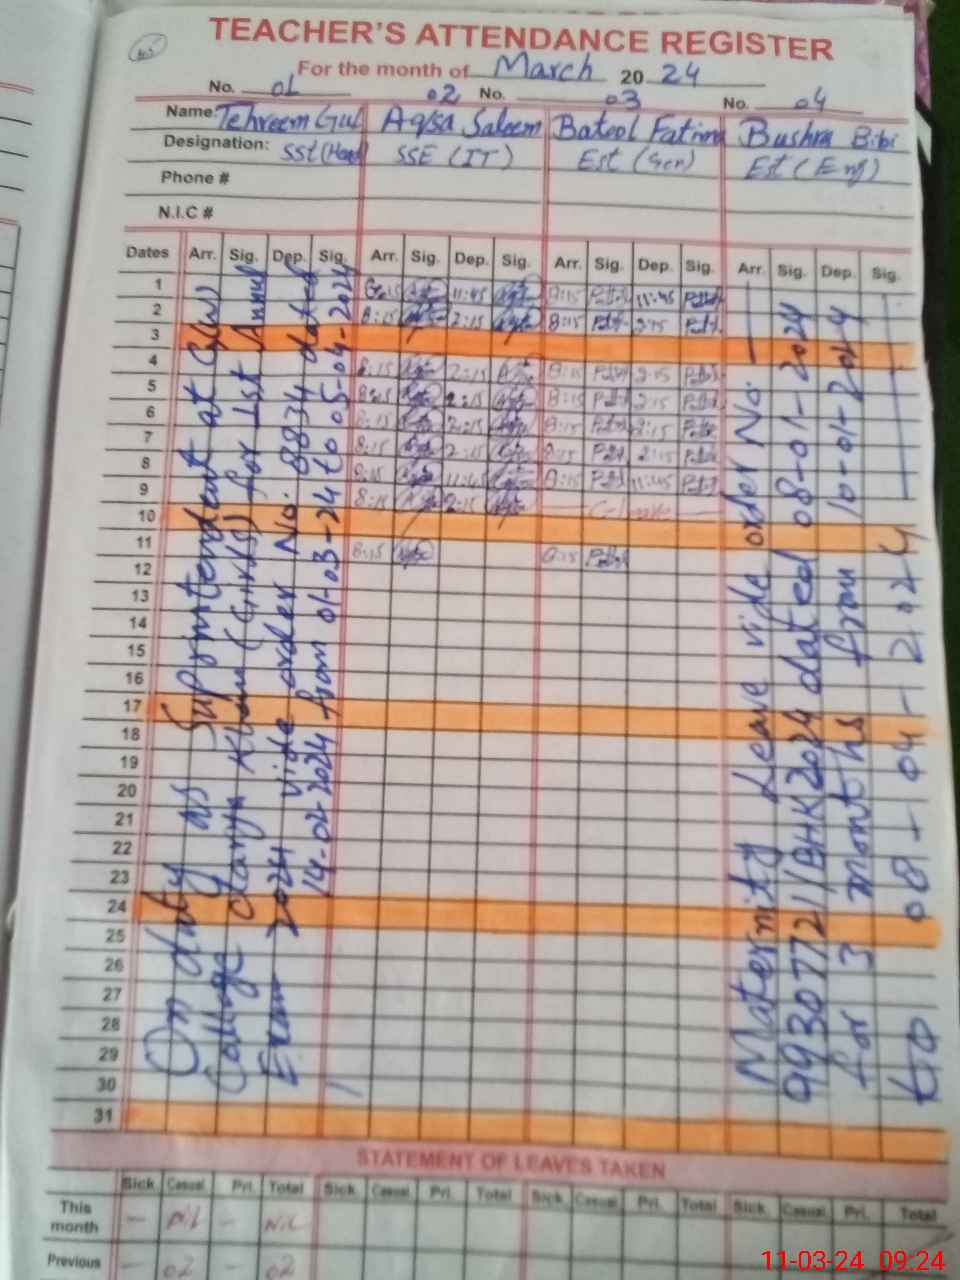 TEACHER'S ATTENDANCE REGISTER
For the month of March 20 24
No. 01 02 No. 03 No. 04
Name: Tehreem Gul Aqsa Saleem Batool Fatima Bushra Bibi
Designation: SSt (Head) SSE (IT) Est (Gen) Est (Eng)
Phone #
N.I.C #
Dates Arr. Sig. Dep. Sig. Arr. Sig. Dep. Sig. Arr. Sig. Dep. Sig. Arr. Sig. Dep. Sig.
1 8:15 11:45 8:15 11:45
2 8:15 2:15 8:15 2:15
3
4 8:15 2:15 8:15 2:15
5 8:15 2:15 8:15 2:15
6 8:15 2:15 8:15 2:15
7 8:15 2:15 8:15 2:15
8 8:15 11:45 8:15 11:45
9 8:15 2:15
10
11 8:15 8:15
12
13
14
15
16
17
18
19
20
21
22
23
24
25
26
27
28
29
30
31
On duty as Suprintendent at G(w)
College darya Khan (Girls) for 1st Annul
Exam 2024 vide order No. 8834 dated
14-02-2024 from 01-03-24 to 05-04-2024
Maternity Leave vide order No.
99307721/BHK2024 dated 08-01-2024
for 3 months from 10-01-2024
to 08-04-2024
STATEMENT OF LEAVES TAKEN
Sick. Casual. Pri. Total Sick. Casual. Pri. Total Sick. Casual. Pri. Total Sick. Casual. Pri. Total
This month - Nil - Nil
Previous - 02 02
11-03-24 09:24